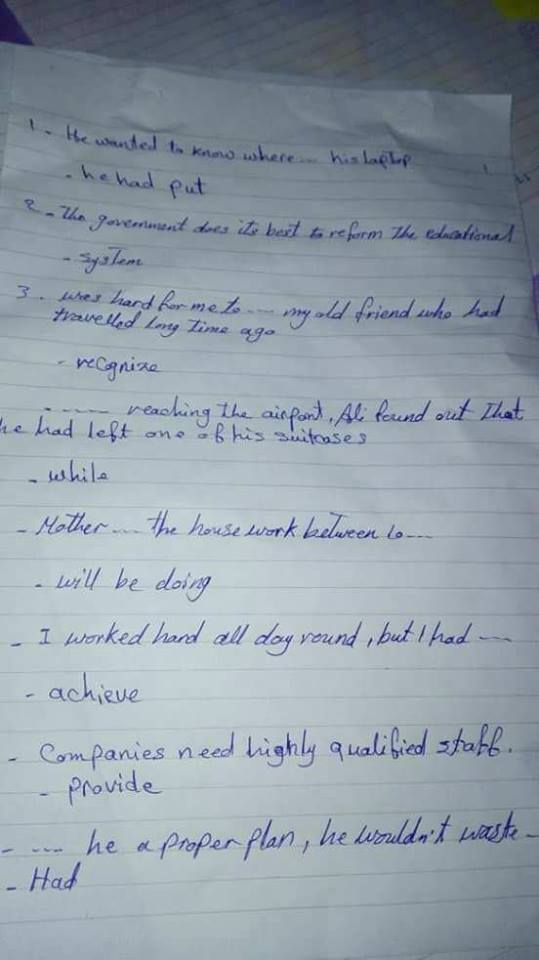 1 - He wanted to know where .... his laptop
- he had put
2 - The government does its best to reform the educational
- system
3 . was hard for me to .... my old friend who had
travelled long time ago
- recognize
- ..... reaching the airport, Ali found out That
he had left one of his suitcases
- while
- Mother .... the house work between 10 ....
- will be doing
- I worked hard all day round, but I had ....
- achieve
- Companies need highly qualified staff.
- provide
- .... he a proper plan, he wouldn't waste -
- Had